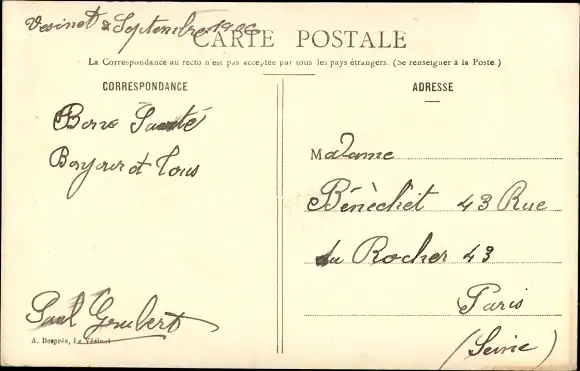 Vesinet 2 Septembre 1906
CARTE POSTALE
La Correspondance au recto n'est pas acceptée par tous les pays étrangers. (Se renseigner à la Poste.)
CORRESPONDANCE
Bonne Santé
Bonjour et Tous
Paul Goubert
A. Després, Le Vésinet
ADRESSE
Madame
Bénèchet 43 Rue
du Rocher 43
Paris
(Seine)